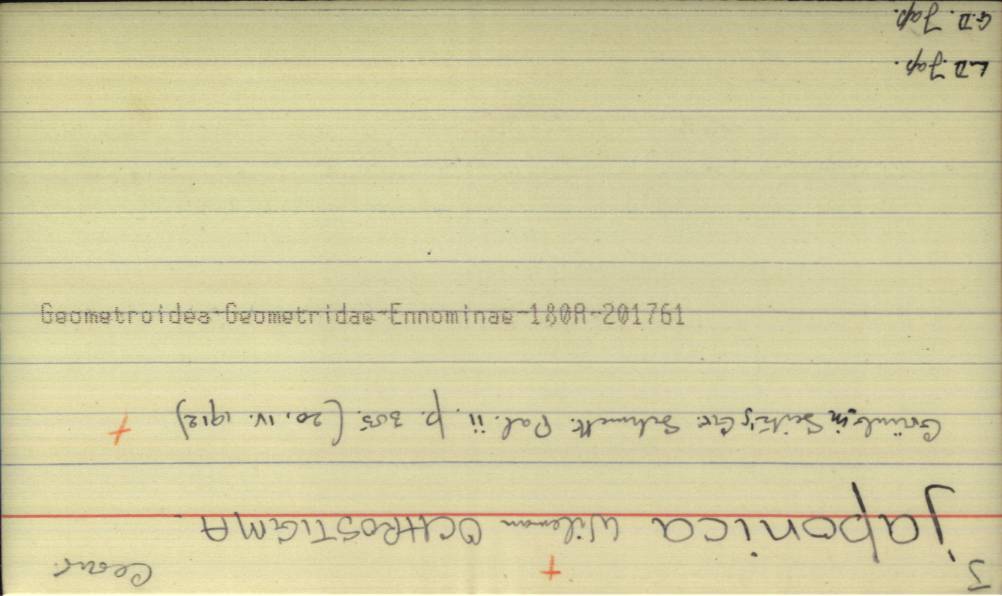 japonica Wileman OCHROSTIGMA.
Grünb. in Seitz's Gr. Schmett. Pal. ii. p. 305. (20. IV. 1912)
Geometroidea-Geometridae-Ennominae-180A-201761
L.D. Jap.
G.D. Jap.